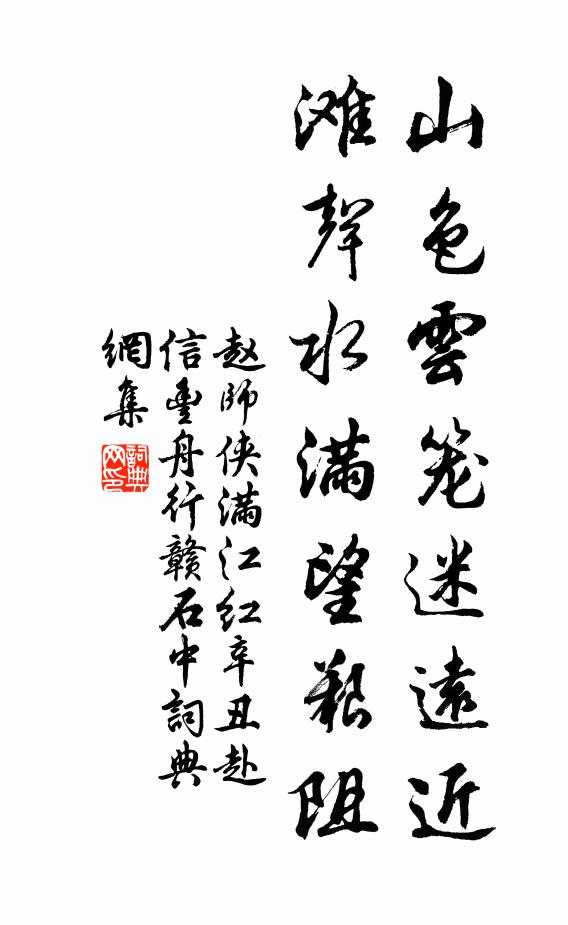 山色雲笼迷遠近
滩聲水满望艱阻
赵師侠满江红辛丑赴
信豐舟行赣石中詞典
網集
詞典
网印